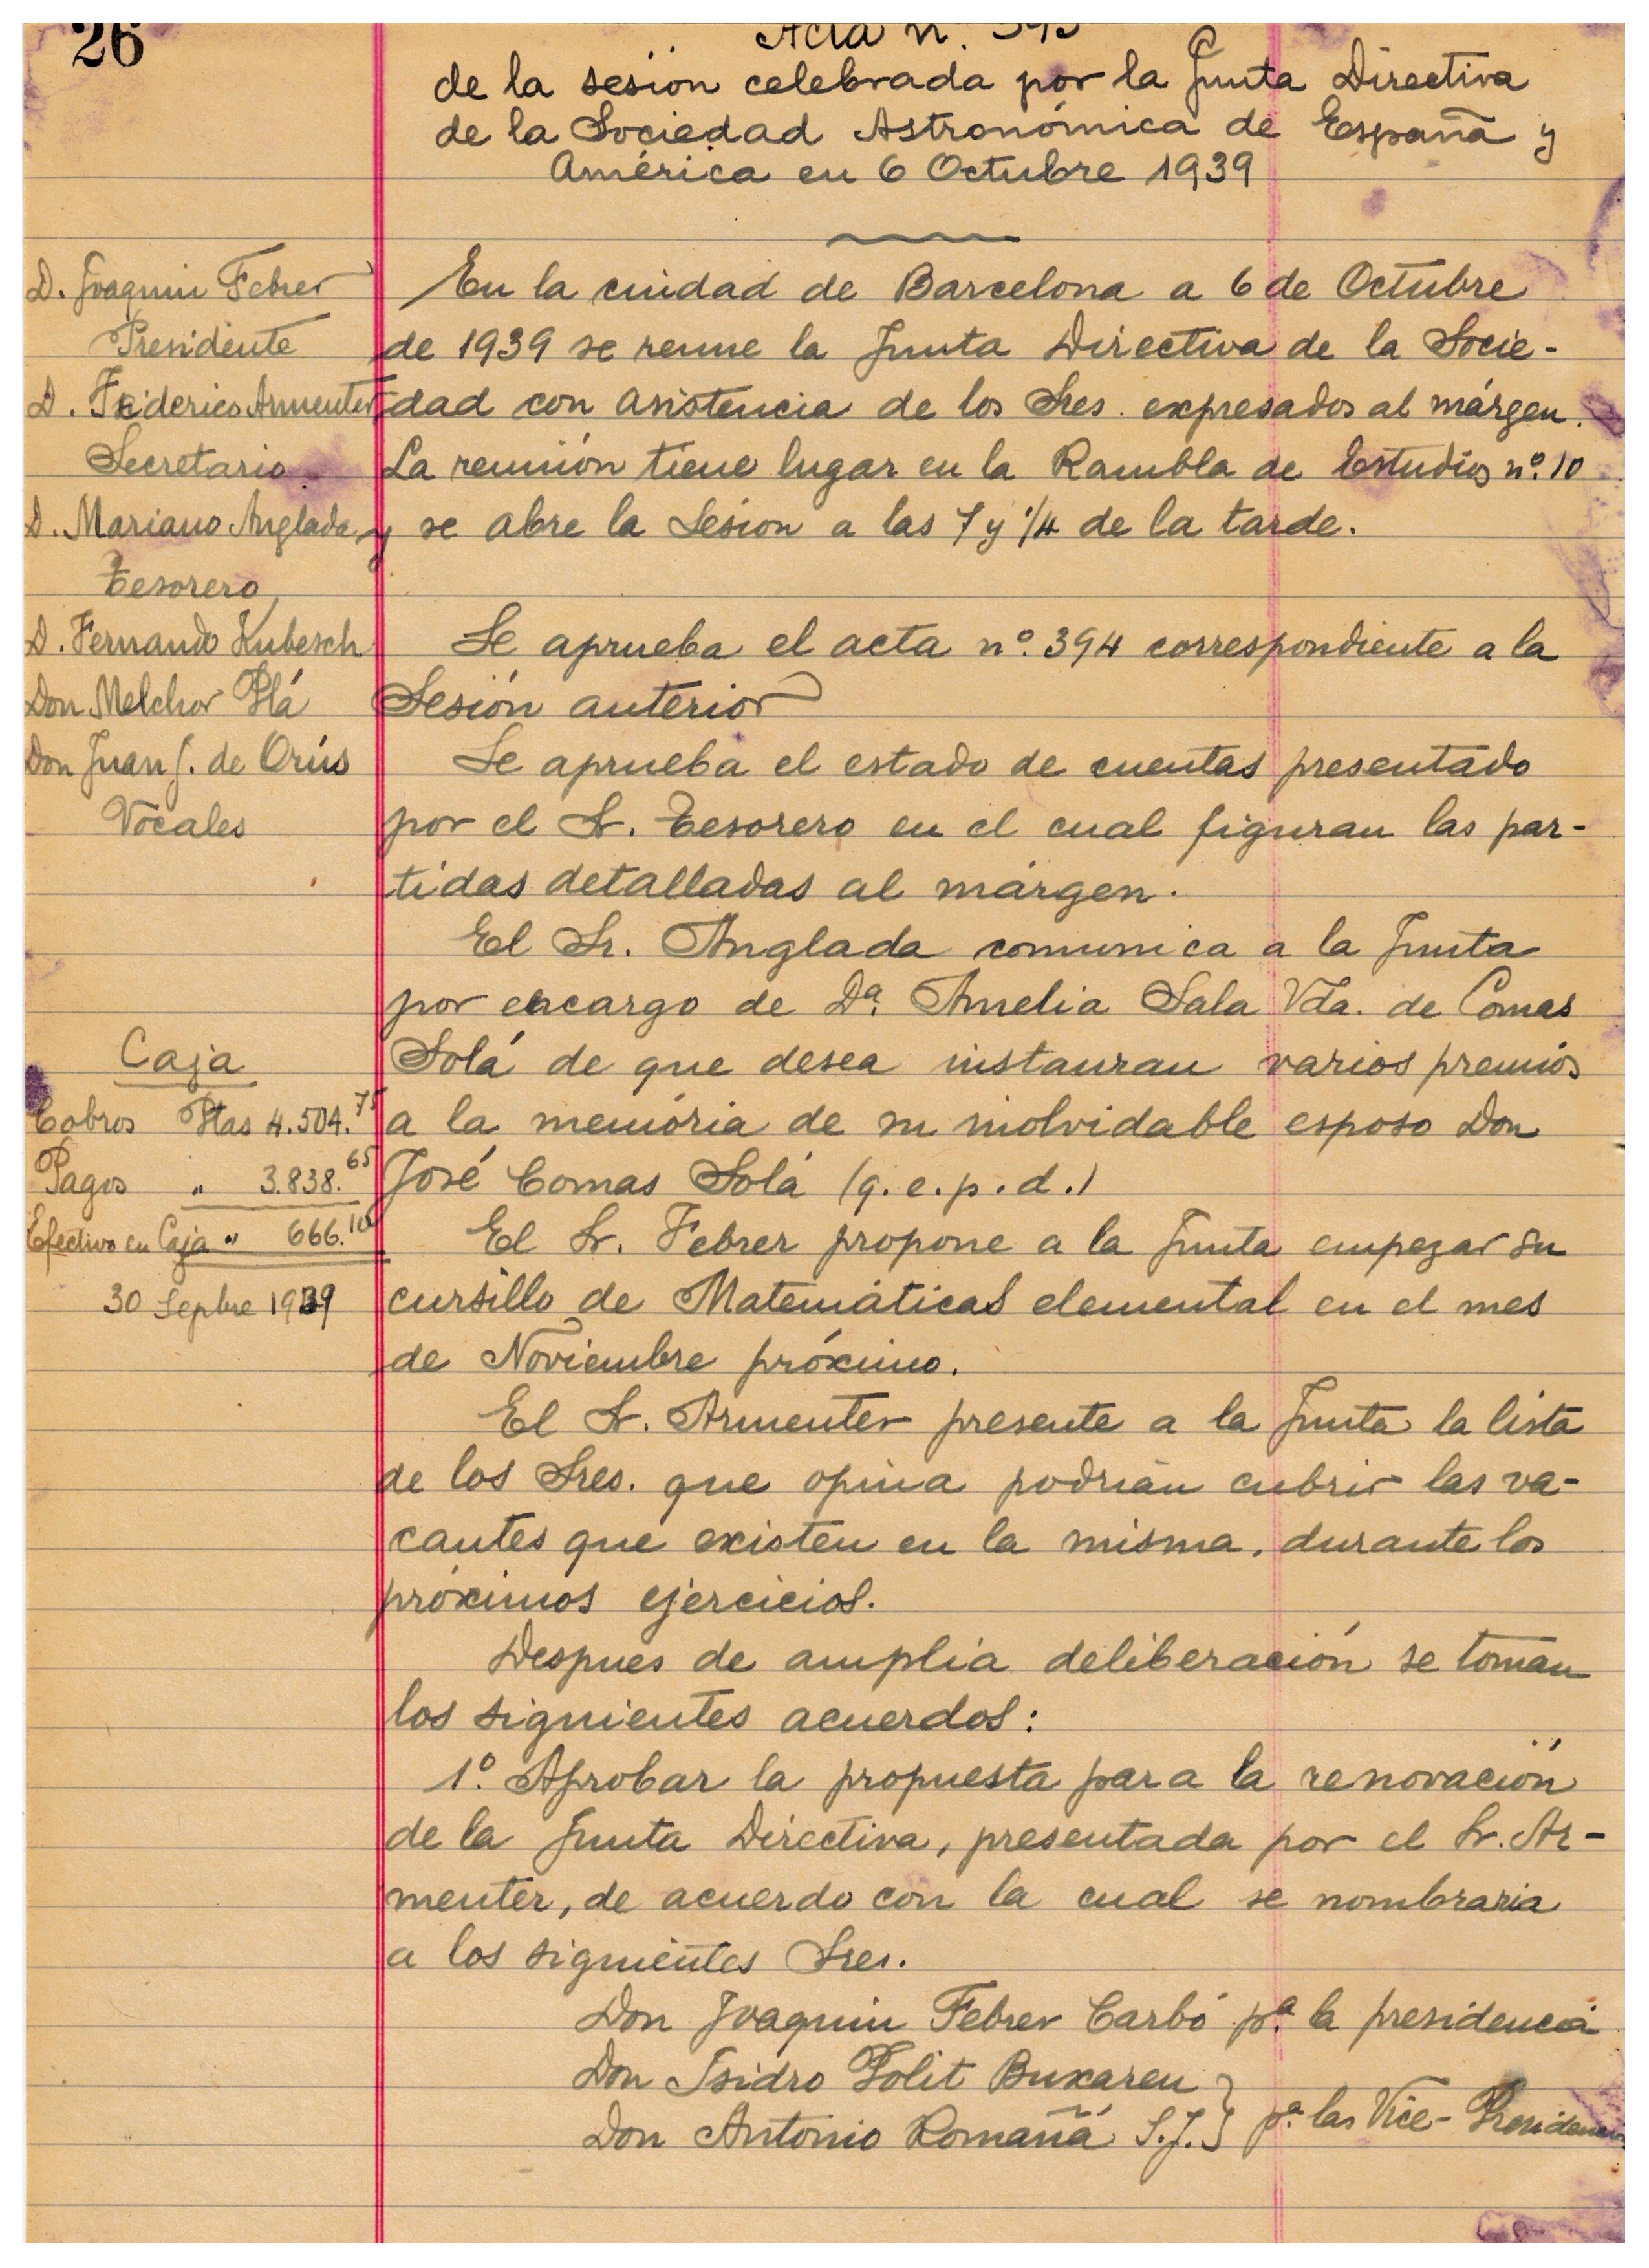 26
Acta n. 395
de la sesión celebrada por la Junta Directiva
de la Sociedad Astronómica de España y
América en 6 Octubre 1939
D. Joaquin Febrer
Presidente
D. Friderico Armenter
Secretario
D. Mariano Anglada
Tesorero
D. Fernando Kubesch
Don Melchor Plá
Don Juan J. de Orús
Vocales
En la ciudad de Barcelona a 6 de Octubre
de 1939 se reune la Junta Directiva de la Socie-
dad con asistencia de los Sres. expresados al márgen.
La reunión tiene lugar en la Rambla de Estudios nº. 10
y se abre la Sesion a las 7 y 1/4 de la tarde.
Se aprueba el acta nº. 394 correspondiente a la
Sesión anterior
Se aprueba el estado de cuentas presentado
por el Sr. Tesorero en el cual figuran las par-
tidas detalladas al márgen.
El Sr. Anglada comunica a la Junta
por encargo de Dª. Amelia Sala Vda. de Comas
Solá de que desea instauran varios premios
a la memória de su inolvidable esposo Don
José Comas Solá (q. e. p. d.)
Caja
Cobros Ptas 4.504.75
Pagos " 3.838.65
Efectivo en Caja " 666.10
30 Sepbre 1939
El Sr. Febrer propone a la Junta empezar su
cursillo de Matemáticas elemental en el mes
de Noviembre próximo.
El Sr. Armenter presente a la Junta la lista
de los Sres. que opina podrián cubrir las va-
cantes que existen en la misma, durante los
próximos ejercicios.
Despues de amplia deliberación se toman
los siguientes acuerdos:
1º. Aprobar la propuesta para la renovación
de la Junta Directiva, presentada por el Sr. Ar-
menter, de acuerdo con la cual se nombraria
a los siguientes Sres.
Don Joaquin Febrer Carbó pª. la presidencia
Don Isidro Polit Buxareu
Don Antonio Romañá S.J. } pª. las Vice-Presidencias